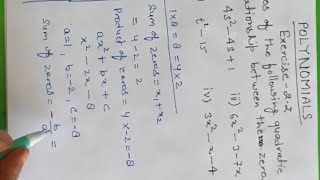 POLYNOMIALS
Exercise - 2.2
es of the following quadratic
ationship between the zero
4s² - 4s + 1 iii) 6x² - 3 - 7x
t² - 15 iv) 3x² - x - 4
1×8 = 8 = 4×2
Sum of zeros = x₁ + x₂
= 4 - 2 = 2
Product of zeros = 4 × -2 = -8
ax² + bx + c
x² - 2x - 8
a=1, b=-2, c=-8
Sum of zeros = -b/a =